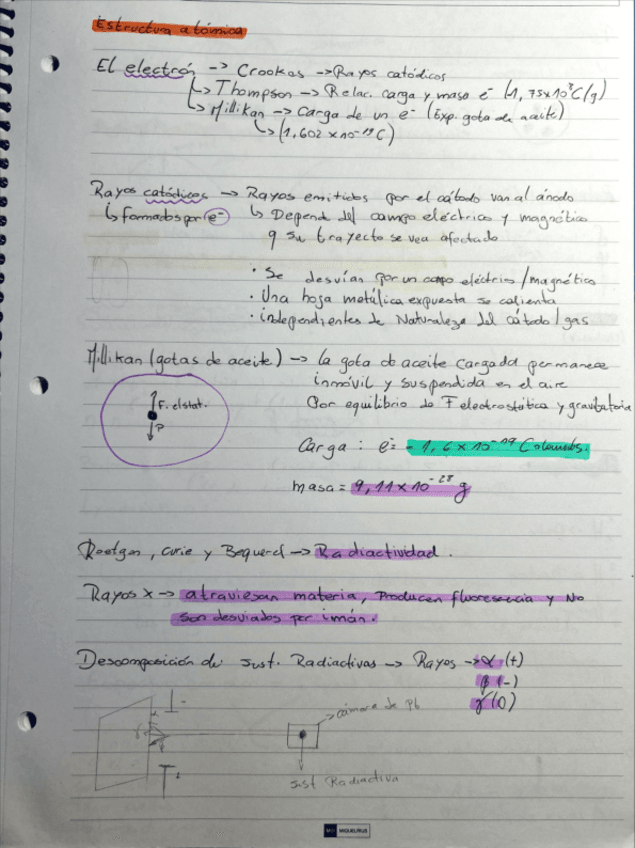 Estructura atómica
El electrón -> Crookes -> Rayos catódicos
↳ Thompson -> Relac. carga y masa e⁻ (1,75x10⁸ C/g)
↳ Millikan -> Carga de un e⁻ (Exp. gota de aceite)
↳ (1,602 x 10⁻¹⁹ C)
Rayos catódicos -> Rayos emitidos por el cátodo van al ánodo
↳ formados por e⁻ ↳ Depende del campo eléctrico y magnético
q su trayecto se vea afectado
• Se desvías por un campo eléctrico / magnético
• Una hoja metálica expuesta se calienta
• independientes de Naturaleza del cátodo / gas
Millikan (gotas de aceite) -> la gota de aceite cargada permanece
inmóvil y suspendida en el aire
F. elstat. Por equilibrio de F electrostática y gravitatoria
P
Carga : e⁻ = - 1,6 x 10⁻¹⁹ Coloumbs.
masa = 9,11x10⁻²⁸ g
Roetgen, Curie y Bequerel -> Radiactividad.
Rayos X -> atraviesan materia, Producen fluorescencia y No
son desviados por imán.
Descomposición de sust. Radiactivas -> Rayos -> α (+)
β (-)
γ (0)
cámara de Pb
sust Radiactiva
MIQUELRIUS